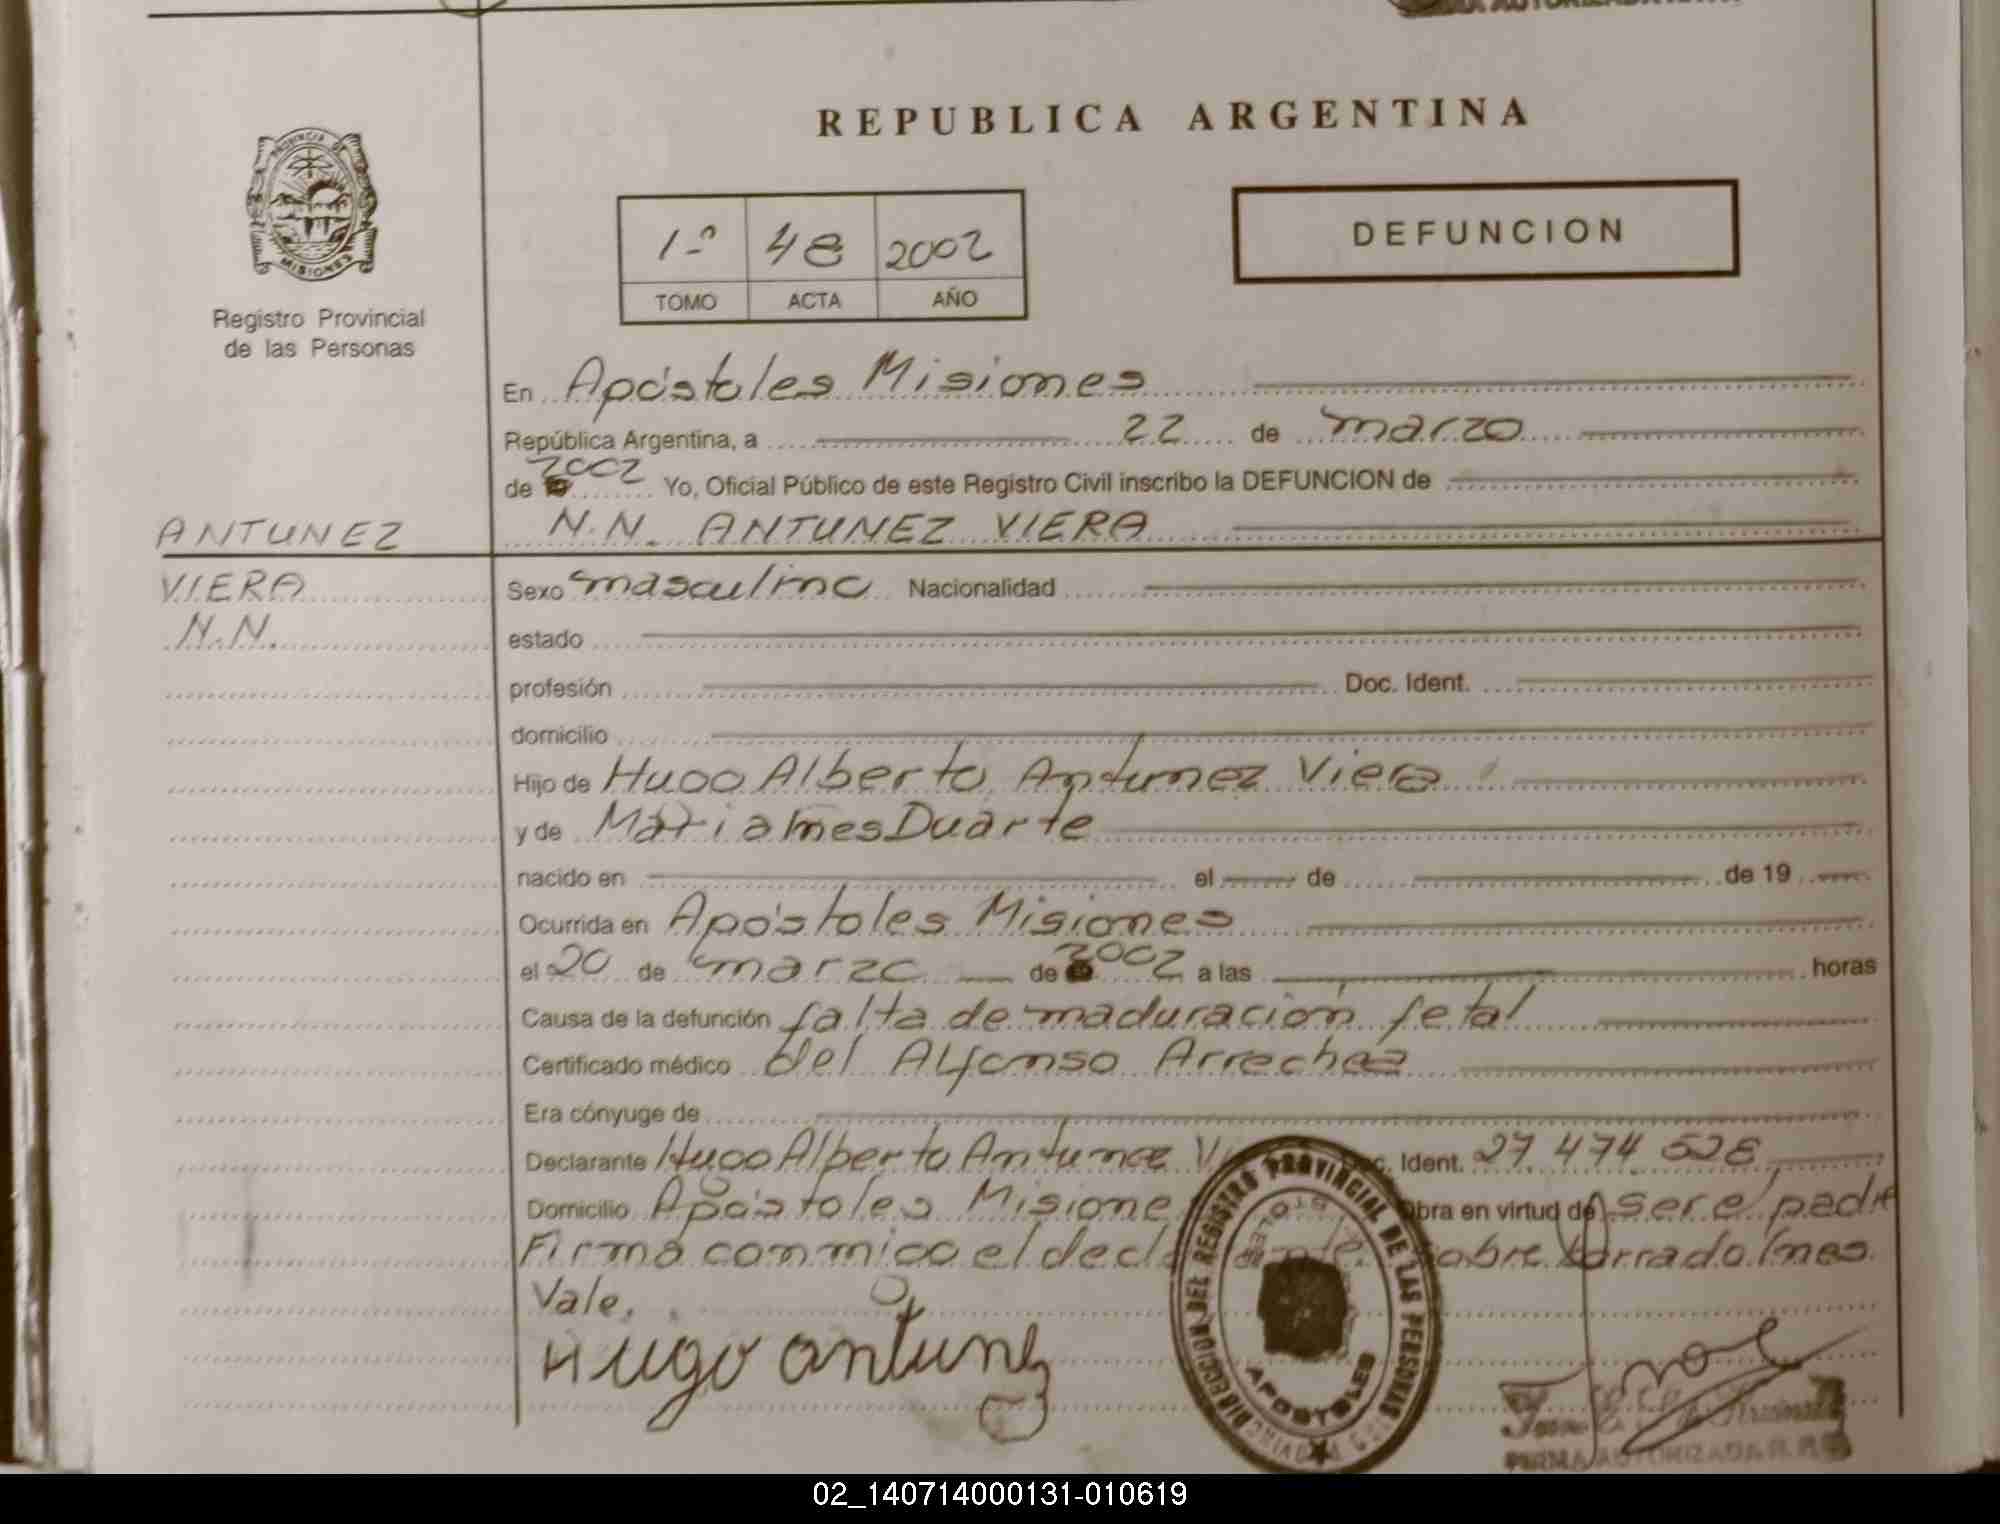 REPUBLICA ARGENTINA
PROVINCIA DE
MISIONES
Registro Provincial
de las Personas
1º 48 2002
TOMO ACTA AÑO
DEFUNCION
En Apóstoles Misiones
República Argentina, a 22 de marzo
de 2002 Yo, Oficial Público de este Registro Civil inscribo la DEFUNCION de
ANTUNEZ N.N. ANTUNEZ VIERA
VIERA Sexo masculino Nacionalidad
N.N. estado
profesión Doc. Ident.
domicilio
Hijo de Hugo Alberto Antunez Viera
y de Maria Ines Duarte
nacido en el de de 19
Ocurrida en Apóstoles Misiones
el 20 de marzo de 2002 a las horas
Causa de la defunción falta de maduración fetal
Certificado médico del Alfonso Arrechea
Era cónyuge de
Declarante Hugo Alberto Antunez Ident. 27 474 528
Domicilio Apóstoles Misione Obra en virtud de ser el padre
Firma conmigo el decl sobre borrado Ines.
Vale.
Hugo antunez
DIRECCION DEL REGISTRO PROVINCIAL DE LAS PERSONAS
APOSTOLES
FIRMA AUTORIZADA R.P.
02_140714000131-010619